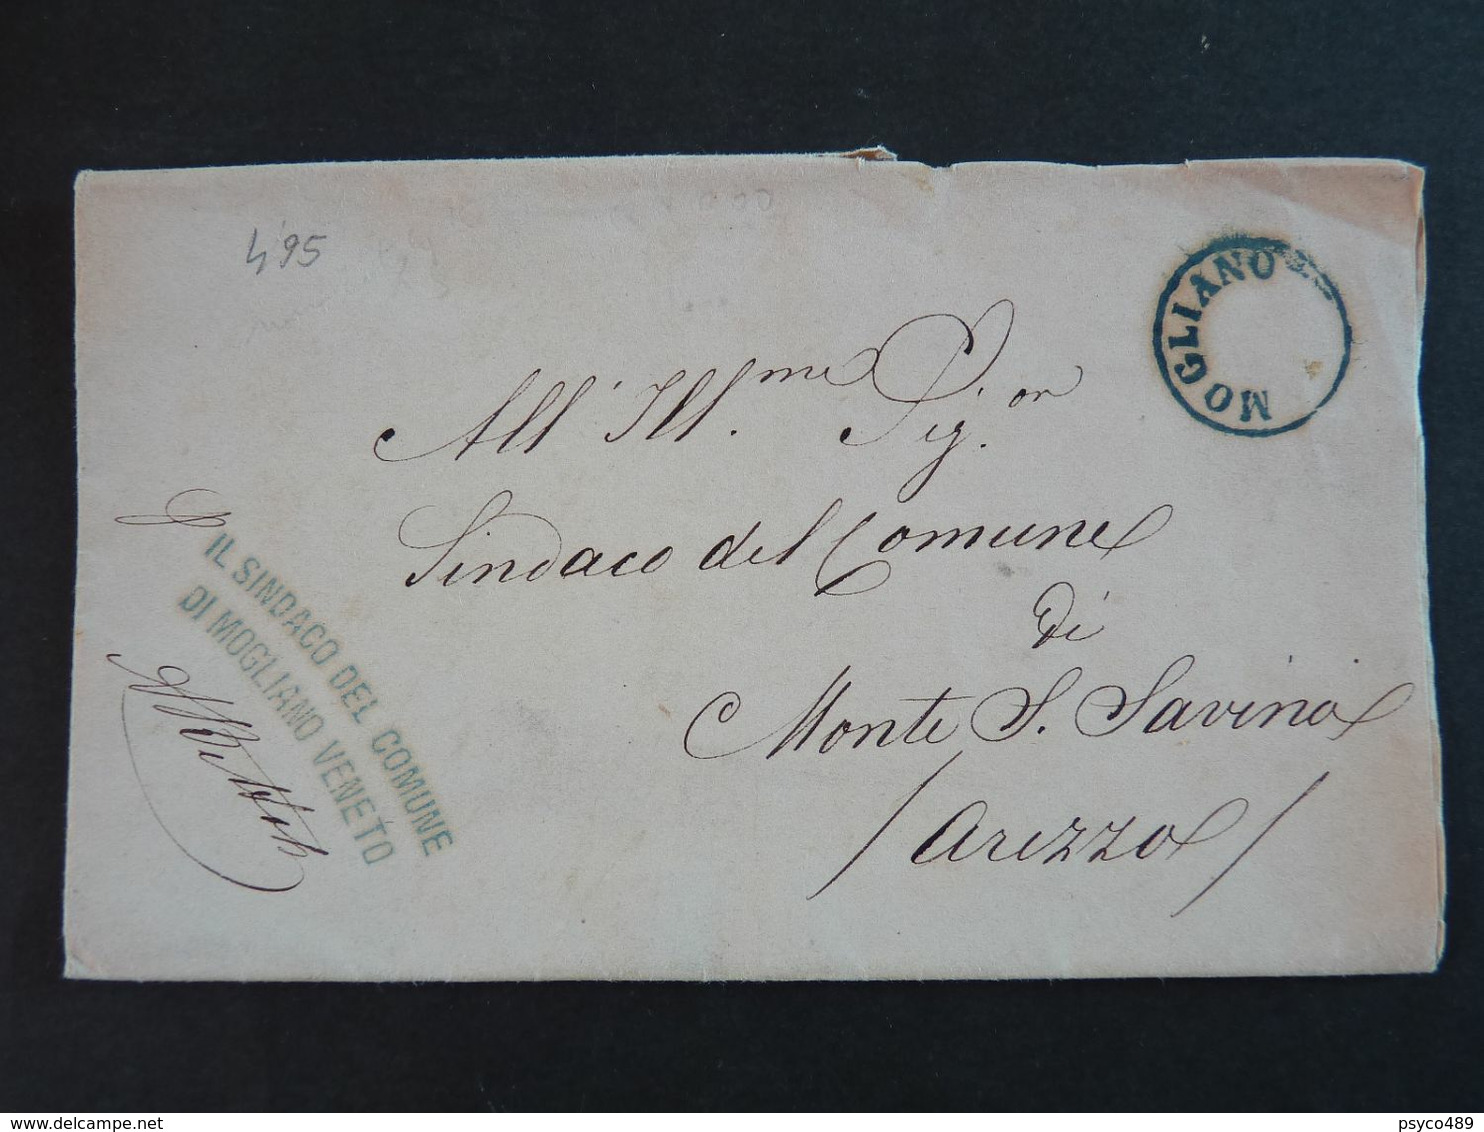 495
MOGLIANO
All' Ill.mo Sig.or
Sindaco del Comune
di
Monte S. Savino
/Arezzo/
IL SINDACO DEL COMUNE
DI MOGLIANO VENETO
delcampe.net
psyco489